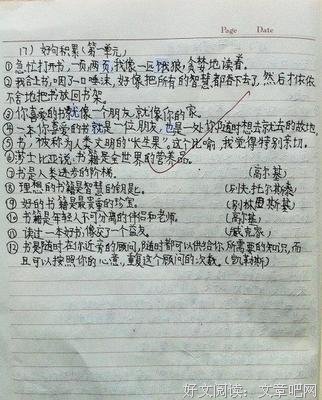 Page Date
(7) 好句积累(第一单元)
①急忙打开书,一页,两页,我像一匹饿狼,贪婪地读着。
②我合上书,咽了一口唾沫,好像把所有的智慧都吞下去了,然后才依依
不舍地把书放回书架。
③你喜爱的书就像一个朋友,就像你的家。
④一本你喜爱的书就是一位朋友,也是一处你随时想去就去的故地。
⑤书,被称为人类文明的“长生果”。这个比喻,我觉得特别亲切。
⑥莎士比亚说:书籍是全世界的营养品。
⑦书是人类进步的阶梯。 (高尔基)
⑧理想的书籍是智慧的钥匙。 (列夫·托尔斯泰)
⑨好的书籍是最贵重的珍宝。 (别林思斯基)
⑩书籍是年轻人不可分离的伴侣和老师。 (高尔基)
⑪读过一本好书,像交了一个益友。 (臧克家)
⑫书是随时在你近旁的顾问,随时都可以供给你所需要的知识,而
且可以按照你的心意,重复这个顾问的次数。(凯勃斯)
好文阅读:文章吧网